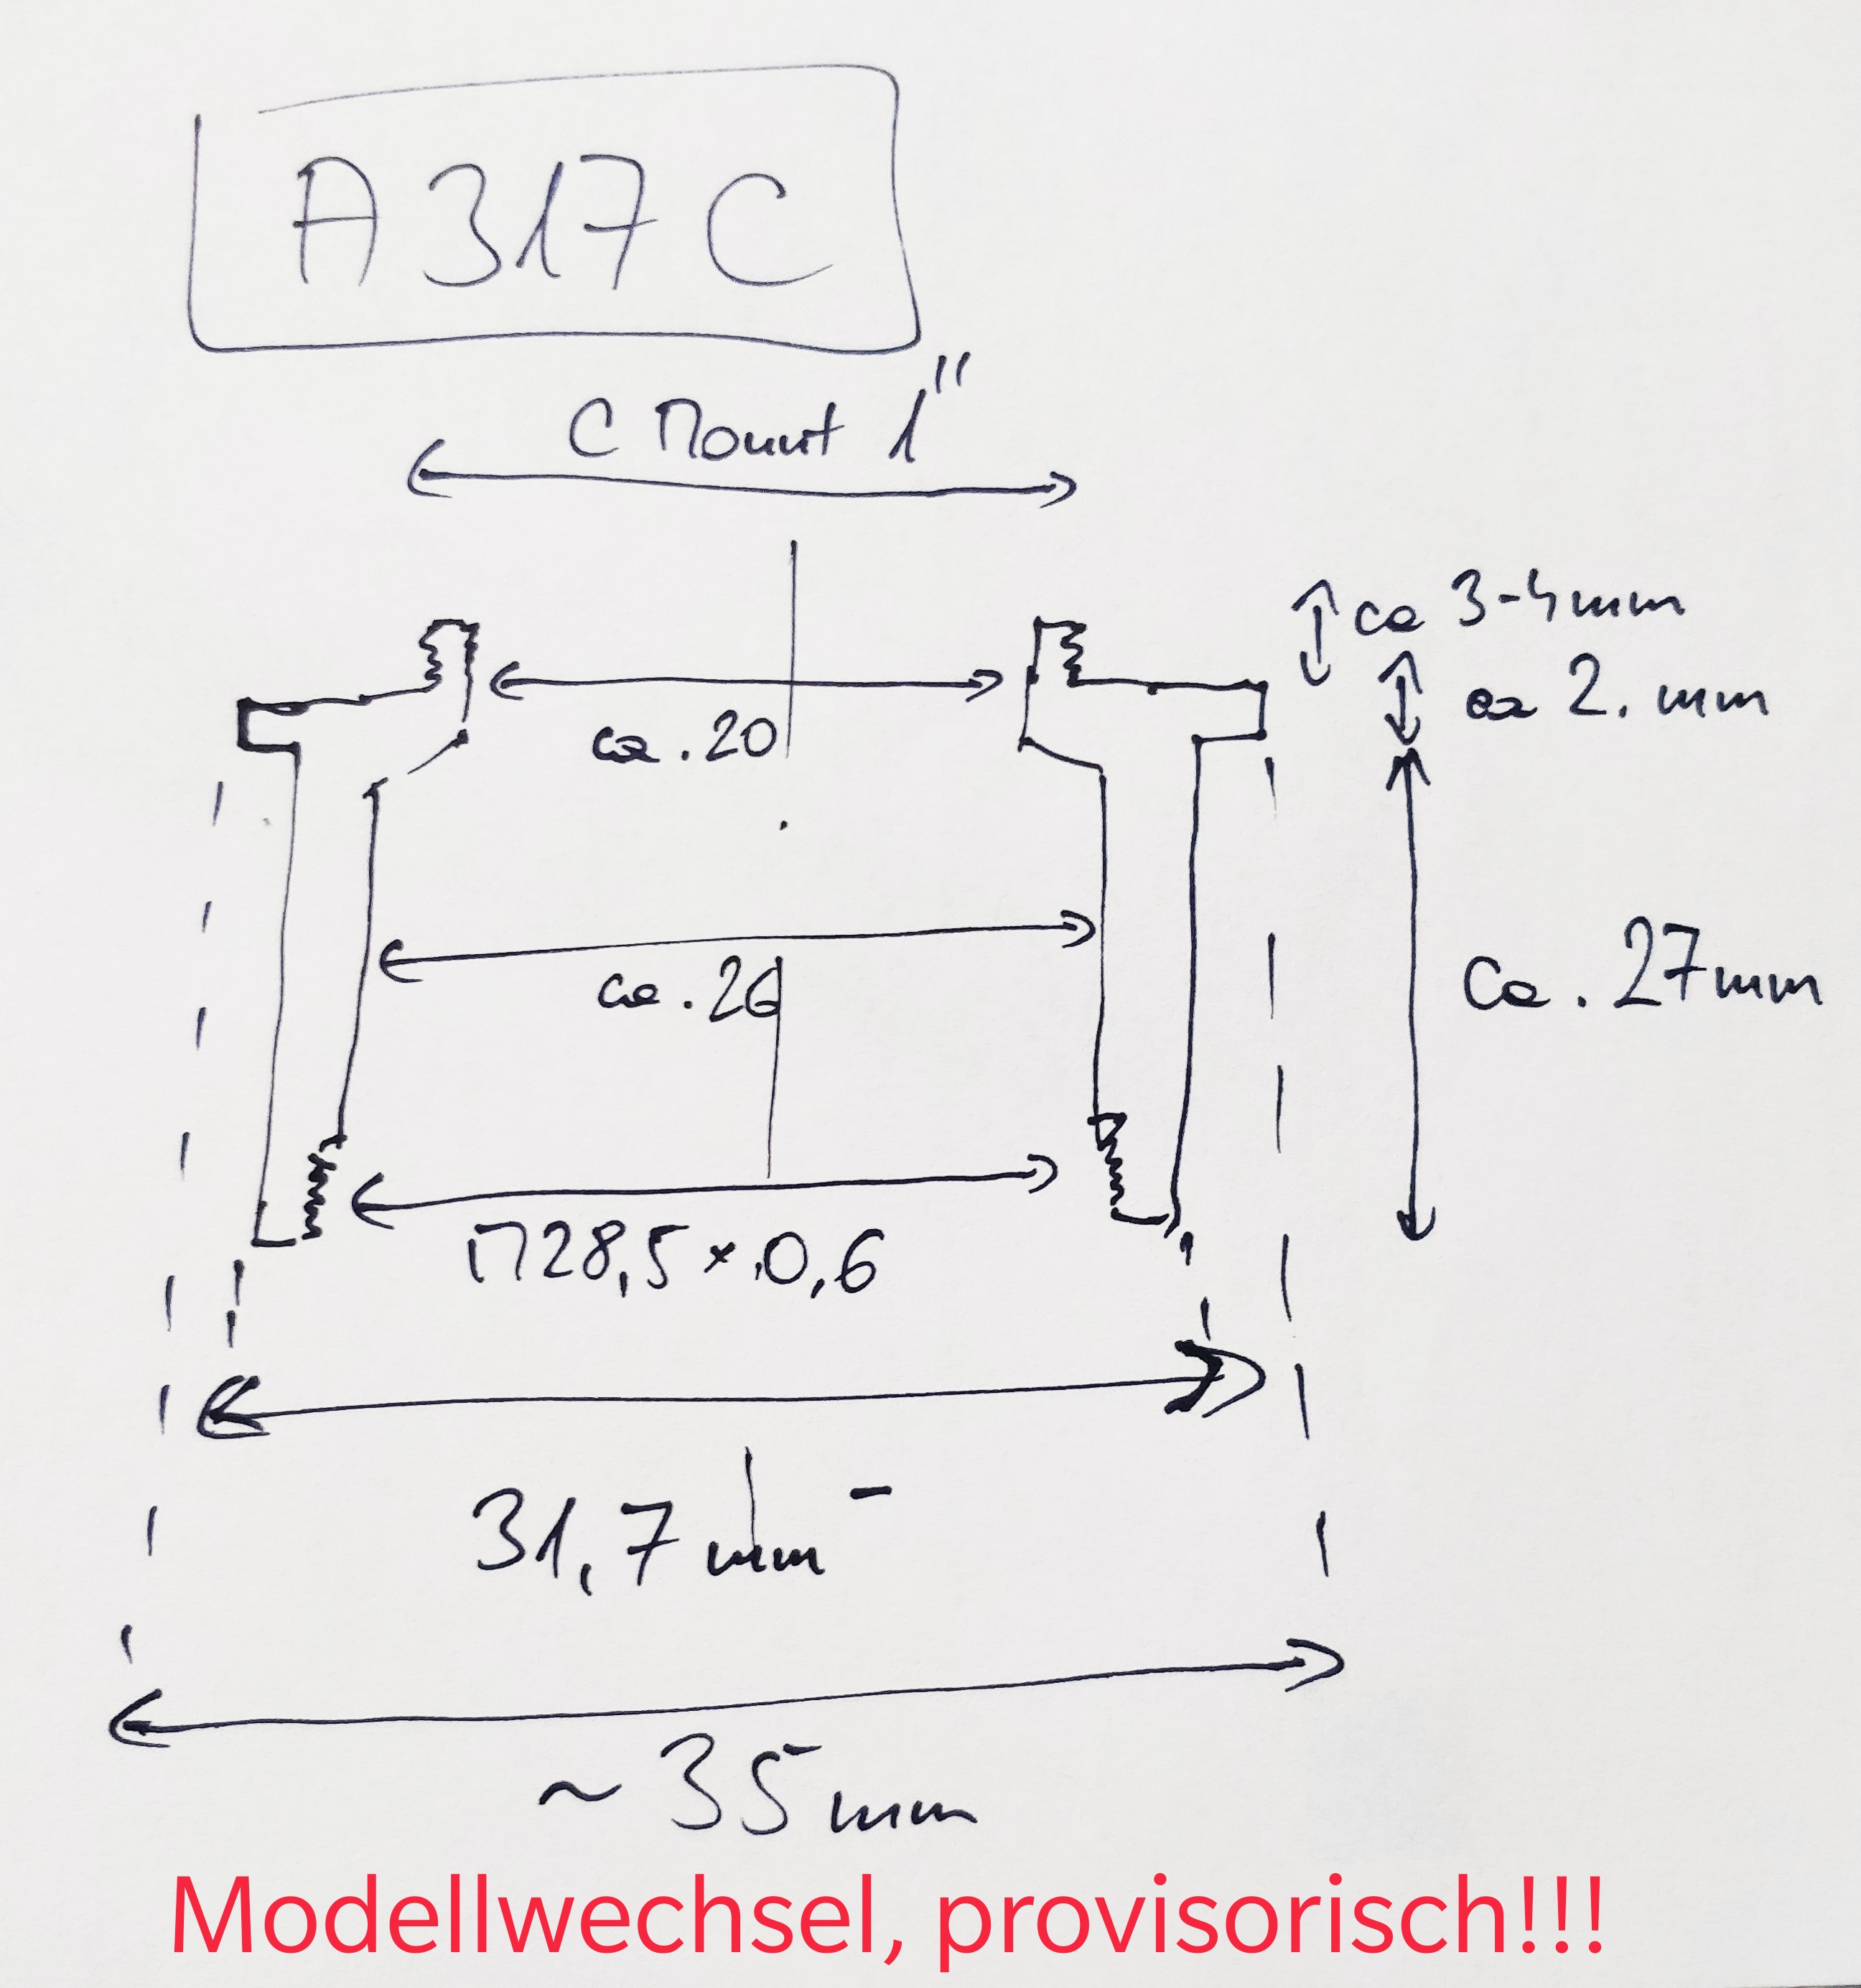 A317C
C Mount 1"
ca 3-4mm
ca 2. mm
ca. 20
ca. 26
ca. 27mm
M28,5 x 0,6
31,7 mm -
~ 35 mm
Modellwechsel, provisorisch!!!